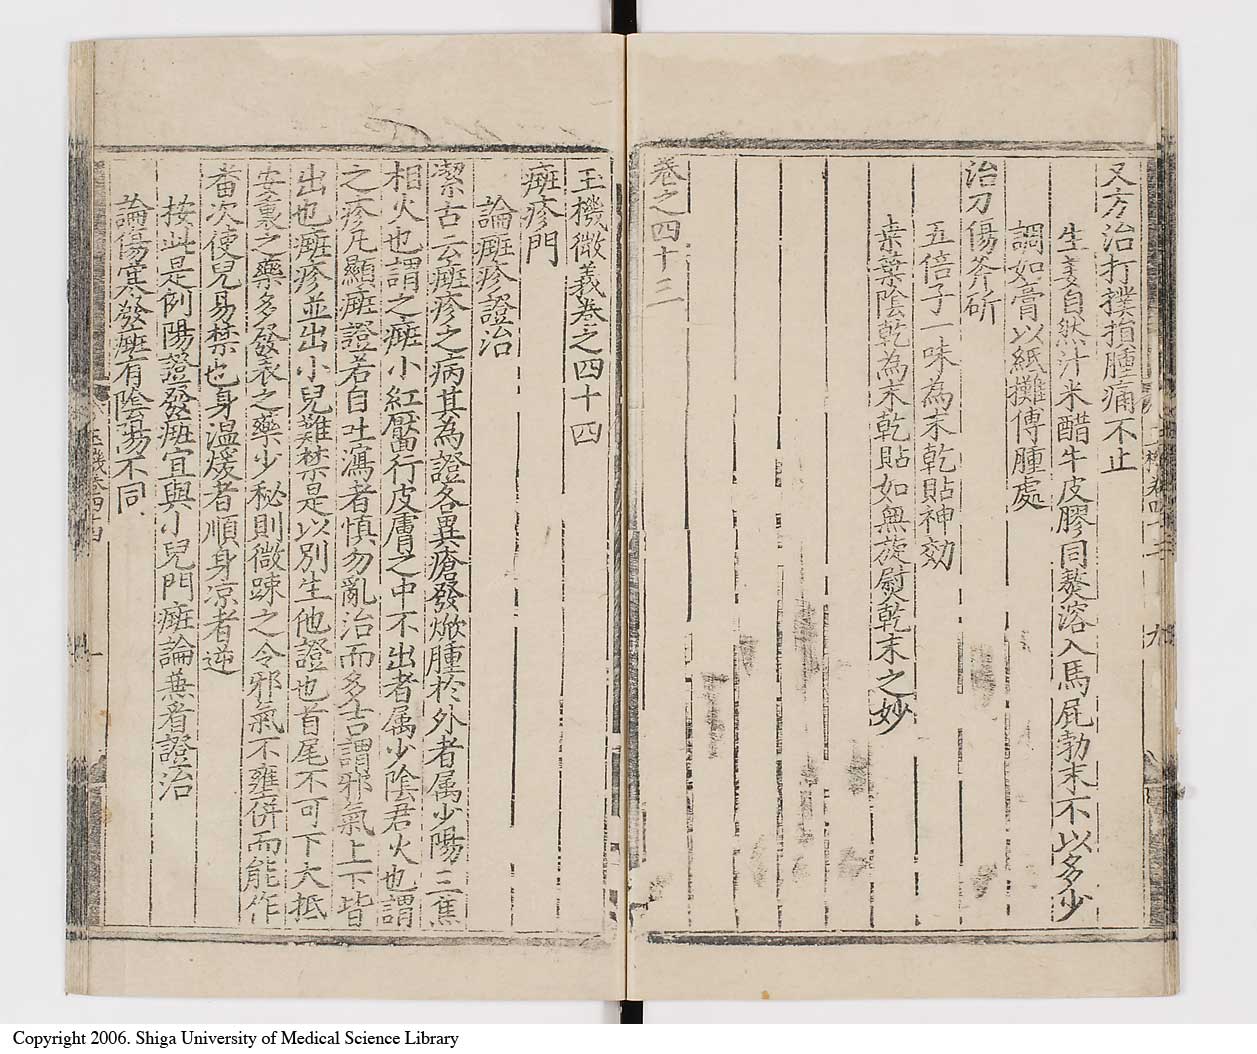 又方治打撲損腫痛不止
生姜自然汁米醋牛皮膠同熬溶入馬屁勃末不以多少
調如膏以紙攤傅腫處
治刀傷斧斫
五倍子一味為末乾貼神効
桒葉陰乾為末乾貼如無旋熨乾末之妙
卷之四十三
玉機微義卷之四十四
癍疹門
論癍疹證治
潔古云癍疹之病其為證各異瘡發焮腫於外者属少陽三焦
相火也謂之癍小紅靨行皮膚之中不出者属少陰君火也謂
之疹凡顯癍證若自吐瀉者慎勿亂治而多吉謂邪氣上下皆
出也癍疹並出小兒難禁是以別生他證也首尾不可下大抵
安裏之藥多發表之藥少秘則微踈之令邪氣不壅併而能作
番次使兒易禁也身温煖者順身凉者逆
按此是例陽證發癍宜與小兒門癍論兼看證治
論傷寒發癍有陰陽不同
玉機卷四十四
一
Copyright 2006. Shiga University of Medical Science Library